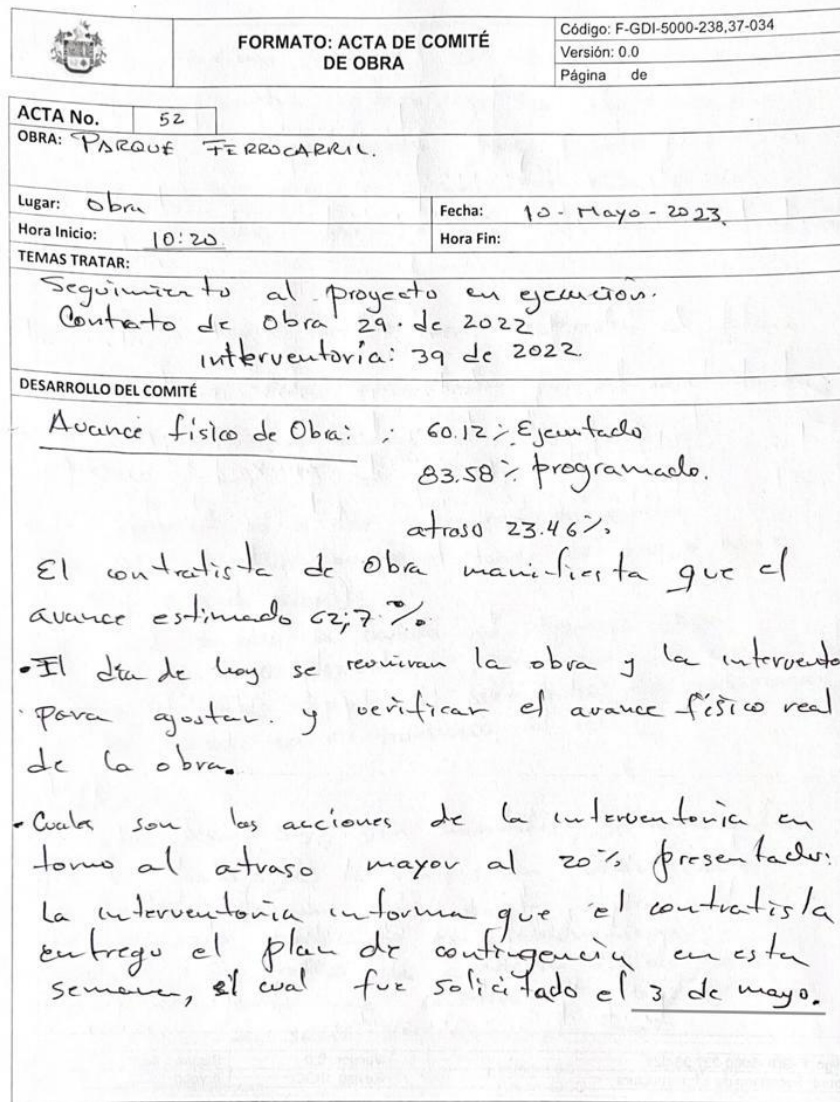 FORMATO: ACTA DE COMITÉ
DE OBRA
Código: F-GDI-5000-238,37-034
Versión: 0.0
Página de
ACTA No. 52
OBRA: PARQUE FERROCARRIL.
Lugar: Obra
Fecha: 10 - Mayo - 2023.
Hora Inicio: 10:20
Hora Fin:
TEMAS TRATAR:
Seguimiento al proyecto en ejecución.
Contrato de Obra 29. de 2022
interventoría: 39 de 2022.
DESARROLLO DEL COMITÉ
Avance físico de Obra: : 60.12% Ejecutado
83.58% programado.
atraso 23.46%.
El contratista de Obra manifiesta que el
avance estimado 62,7%.
• El día de hoy se reuniran la obra y la intervento
para ajustar. y verificar el avance físico real
de la obra.
• Cuales son las acciones de la interventoria en
torno al atraso mayor al 20% presentado:
La interventoria informa que el contratista
entrego el plan de contingencia en esta
semana, el cual fue solicitado el 3 de mayo.